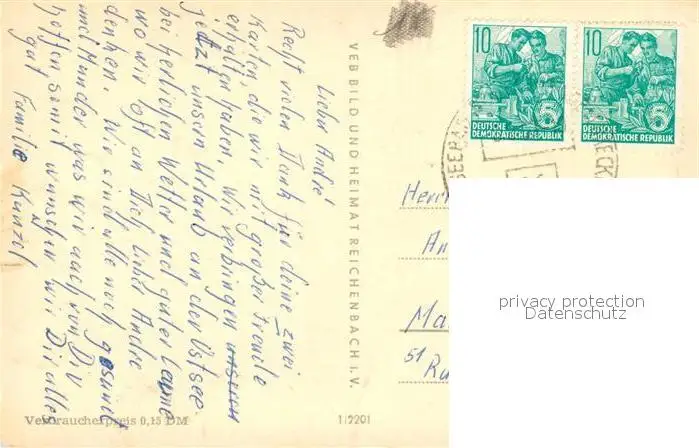 Lieber André!
Recht vielen Dank für deine zwei
Karten, die wir mit großer Freude
erhalten haben. Wir verbringen unseren
jetzt unsern Urlaub an der Ostsee
bei herrlichen Wetter und guter Laune
wo wir oft an Dich lieber Andre
denken. Wir sind alle noch gesund
und munter was wir auch von Dir
hoffen somit wünschen wir Dir alles
gut Familie Künzel
VEB BILD UND HEIMAT REICHENBACH I. V.
Verbraucherpreis 0,15 DM
1/7201
10
5
DEUTSCHE
DEMOKRATISCHE REPUBLIK
10
5
DEUTSCHE
DEMOKRATISCHE REPUBLIK
SEEBAD
ECK
Herrn
An
Ma
51 Ru
privacy protection
Datenschutz